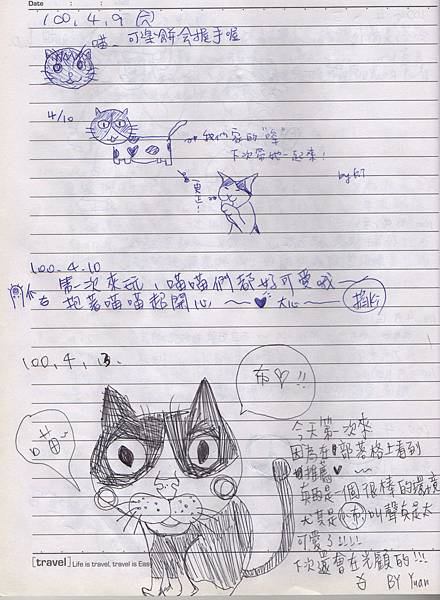 Date
100.4.9 (六)
喵、可麗餅会握手喔
4/10
我們家的"嗶"
下次帶她一起來!
100.4.10
第一次來玩,喵喵們都好可愛哦~
抱著喵喵超開心~♥ 大心~
100.4.13.
布♡!!
喵~
今天第一次來
因為在部落格上看到
推薦♥~
真的是一個很棒的環境
尤其是小布叫聲真是太
可愛了!!!!
下次還會在光顧的!!!
BY Yuan
[travel] Life is travel, travel is Easy